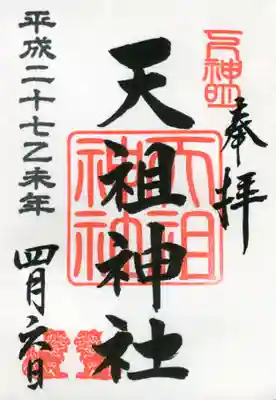 奉拝
天祖神社
平成二十七乙未年
四月六日
天祖神社